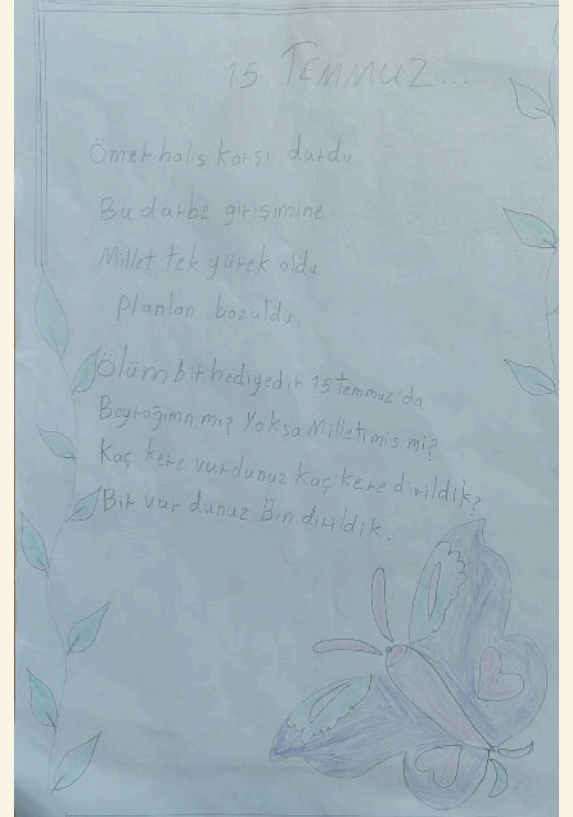 15 TEMMUZ...
Ömer halis korşı durdu
Bu darbe girişimine.
Millet tek yürek oldu
Planları bozuldu.
Ölüm bir hediyedir 15 temmuz'da
Boyrağımn mı? Yoksa Milletimis mi?
Kaç kere vurdunuz kaç kere dirildik?
Bir vur dunuz Bin dirildik.